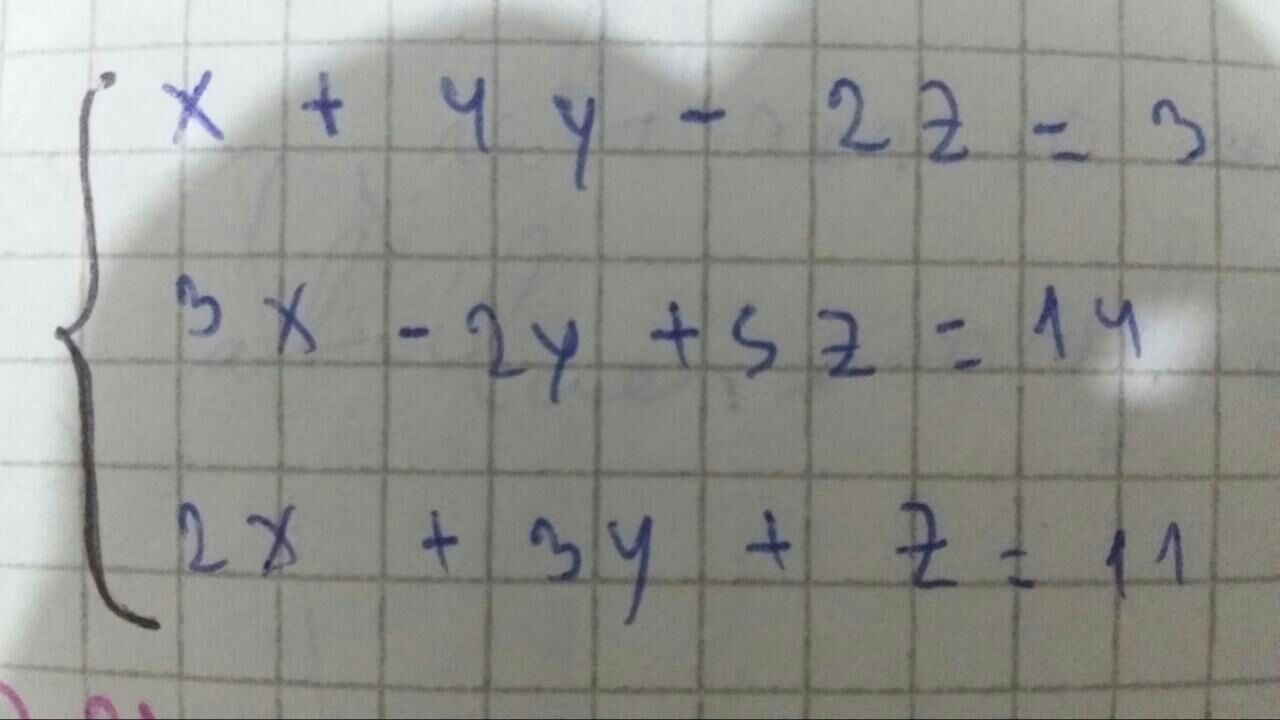 x + 4y - 2z = 3
3x - 2y + 5z = 14
2x + 3y + z = 11